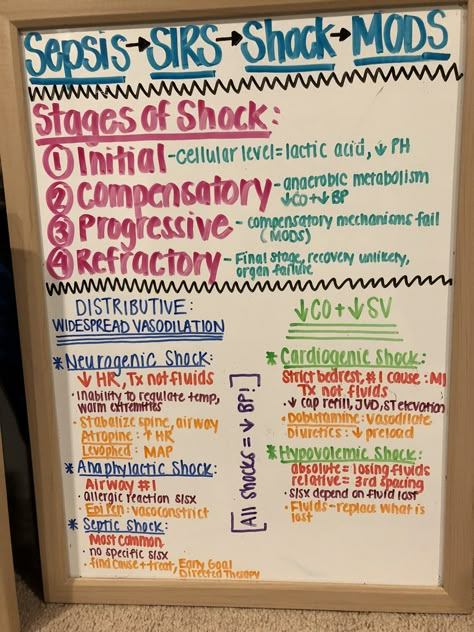 Sepsis → SIRS → Shock → MODS
Stages of Shock:
① Initial - cellular level = lactic acid, ↓ PH
② Compensatory - anaerobic metabolism
↓CO + ↓ BP
③ Progressive - compensatory mechanisms fail
(MODS)
④ Refractory - Final stage, recovery unlikely,
organ failure
DISTRIBUTIVE:
WIDESPREAD VASODILATION
* Neurogenic Shock:
↓ HR, Tx not fluids
• Inability to regulate temp,
warm extremities
• Stabalize spine, airway
Atropine: ↑ HR
Levophed: MAP
* Anaphylactic Shock:
Airway #1
• Allergic reaction s/sx
Epi Pen: vasoconstrict
* Septic Shock:
Most common
• no specific s/sx
• find cause + treat, Early Goal
Directed Therapy
[All shocks = ↓ BP!]
↓CO + ↓SV
* Cardiogenic Shock:
Strict bedrest, #1 cause: MI
Tx not fluids
• ↓ cap refill, JVD, ST elevation
• Dobutamine: vasodilate
Diuretics: ↓ preload
* Hypovolemic Shock:
absolute = losing fluids
relative = 3rd spacing
• s/sx depend on fluid lost
• Fluids - replace what is
lost